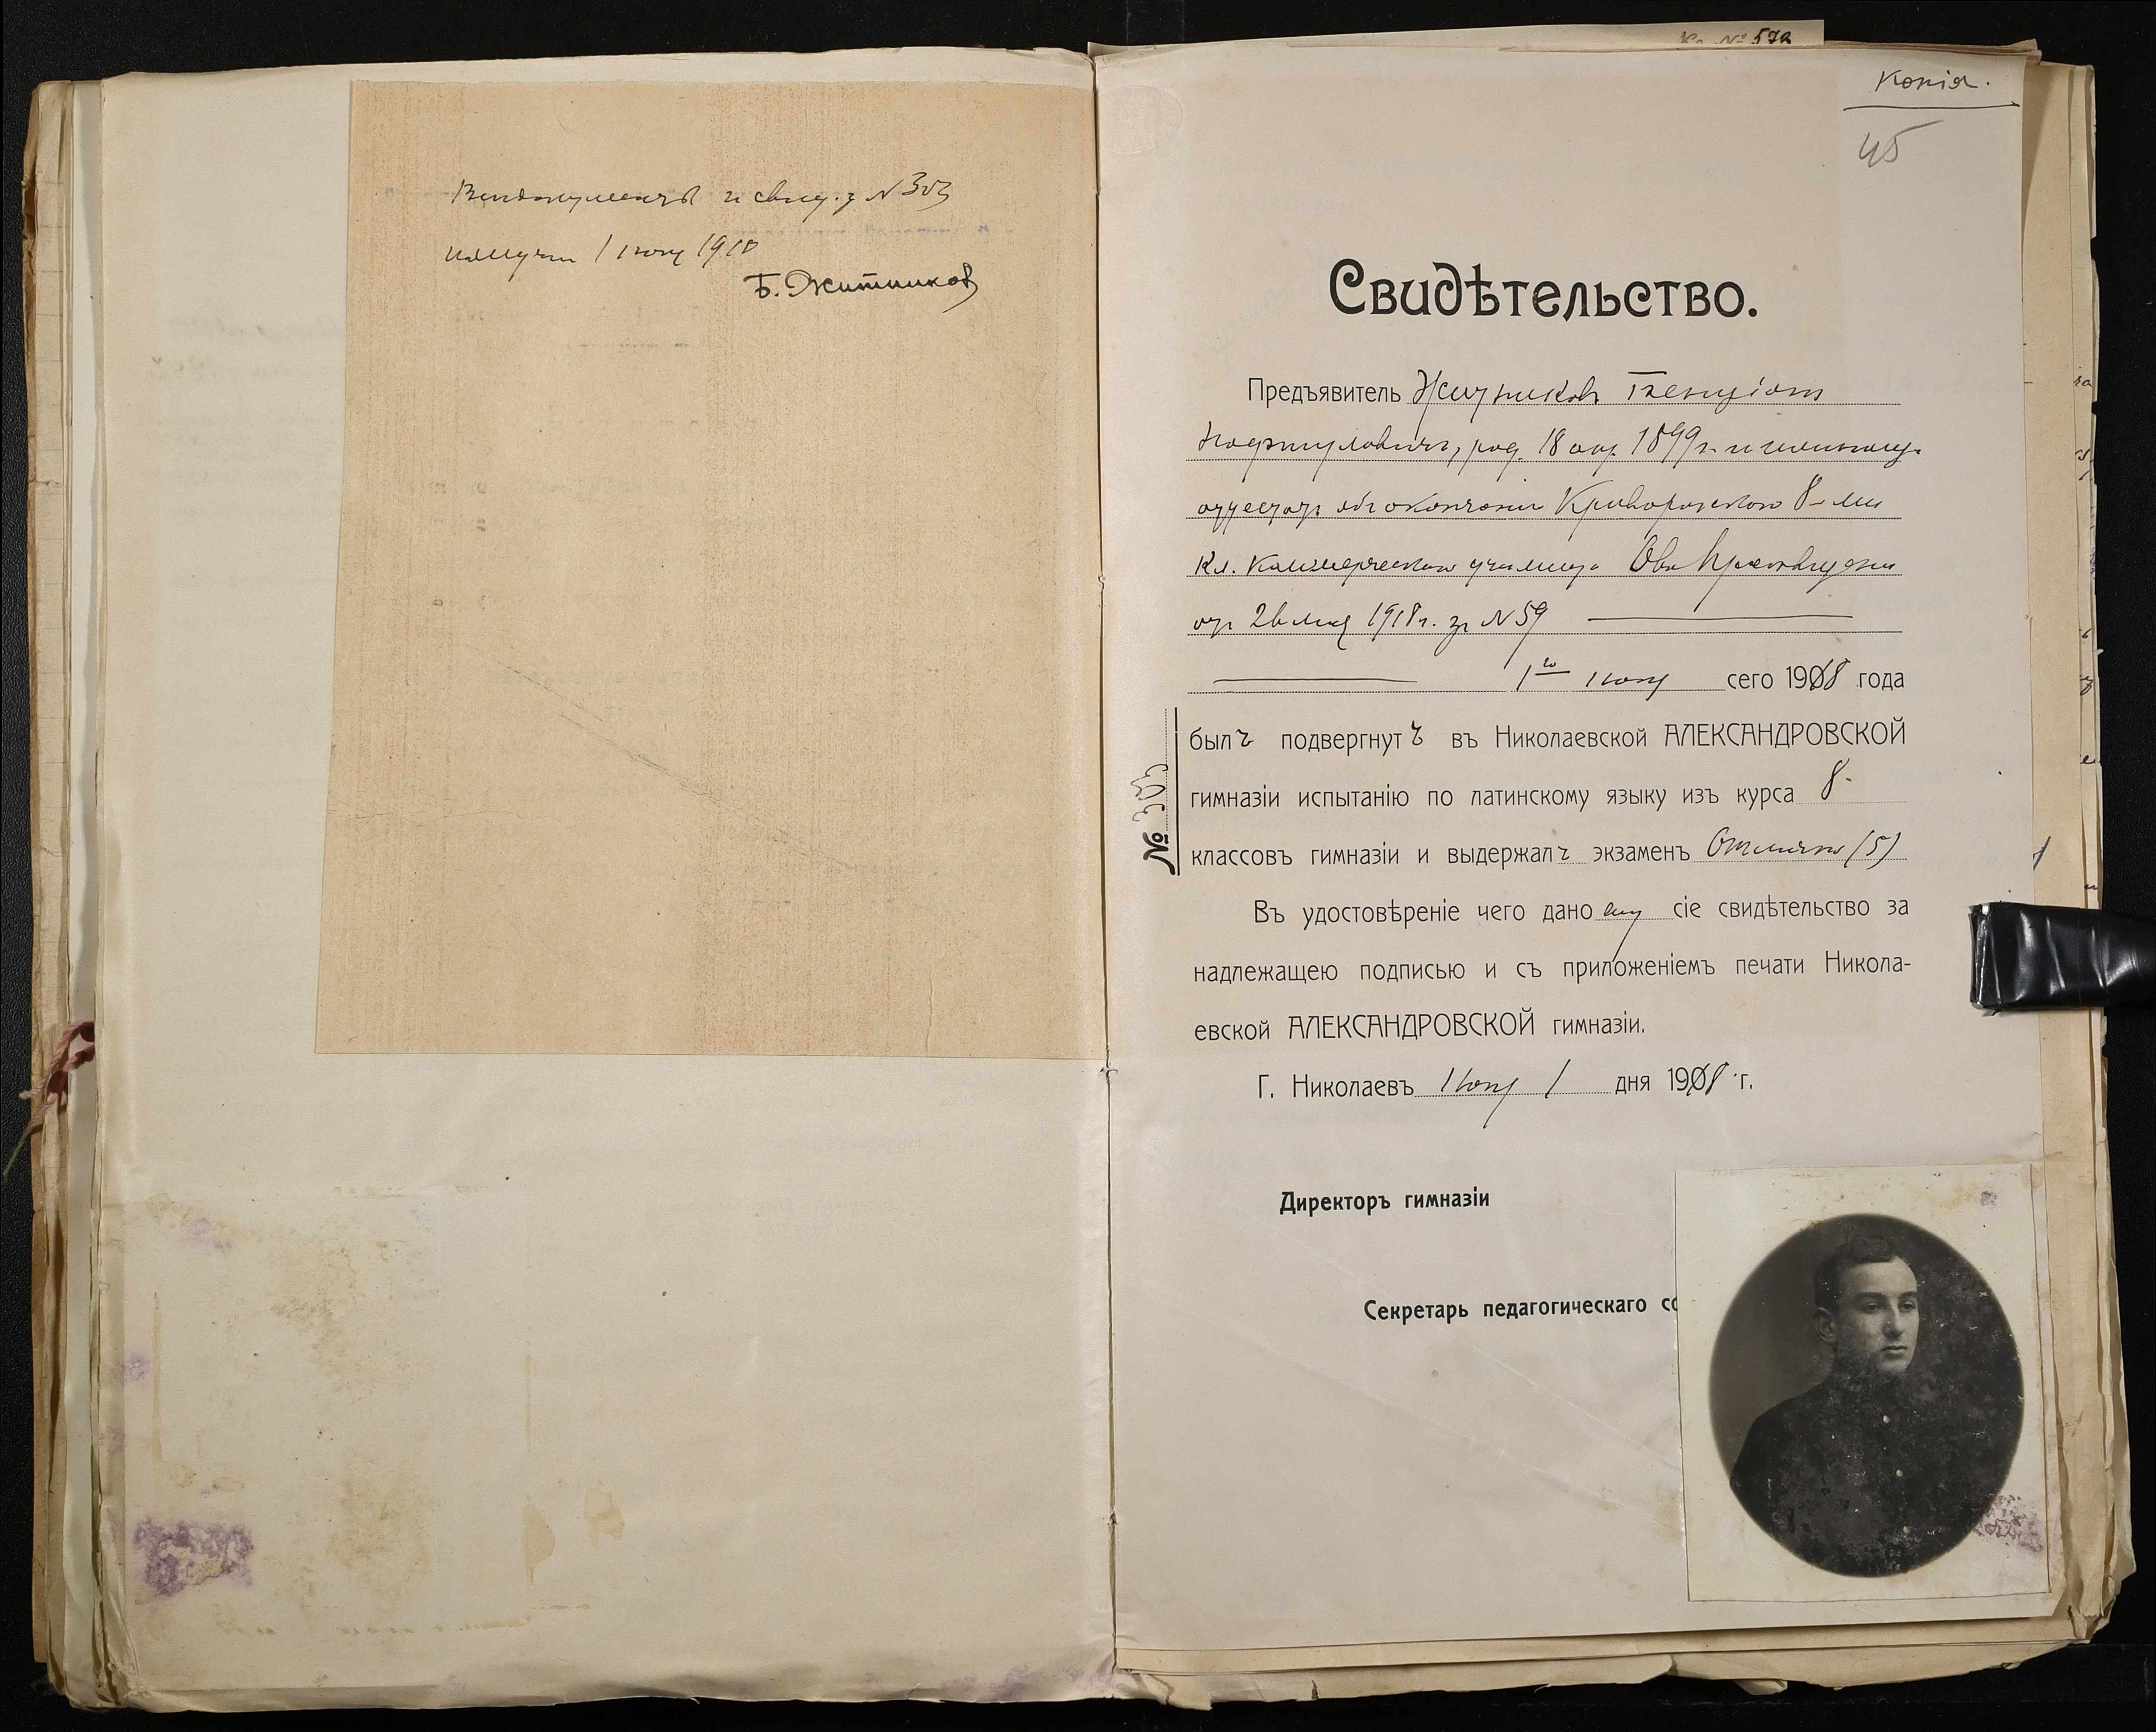 Кв. № 572
Копія.
45
и свид. за N 303
получил 1 июня 1918
Б. Житников
Свидѣтельство.
Предъявитель Житников Бенціон
Нафтулович, род. 18 1899 г. и имеющ.
аттестат об окончании Криворожского 8-ми
кл. Коммерческого училища
от 26 мая 1918 г. за N 59
1го июня сего 1918 года
былъ подвергнутъ въ Николаевской АЛЕКСАНДРОВСКОЙ
№ 303
гимназіи испытанію по латинскому языку изъ курса 8-
классовъ гимназіи и выдержалъ экзаменъ Отлично (5)
Въ удостовѣреніе чего дано ему сіе свидѣтельство за
надлежащею подписью и съ приложеніемъ печати Никола-
евской АЛЕКСАНДРОВСКОЙ гимназіи.
Г. Николаевъ Июня 1 дня 1918 г.
Директоръ гимназіи
Секретарь педагогическаго